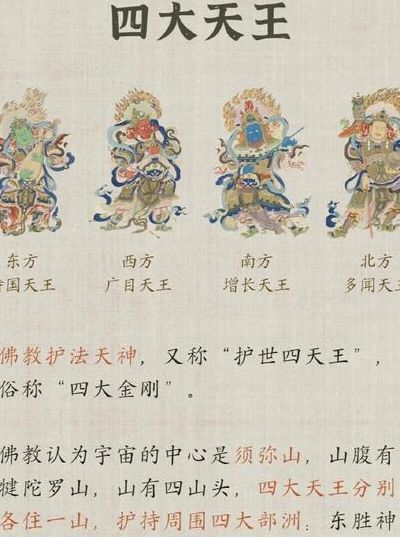 四大天王
东方
西方
南方
北方
国天王
广目天王
增长天王
多闻天王
佛教护法天神，又称“护世四天王”，
俗称“四大金刚”。
佛教认为宇宙的中心是须弥山，山腹有
犍陀罗山，山有四山头，四大天王分别
各住一山，护持周围四大部洲：东胜神